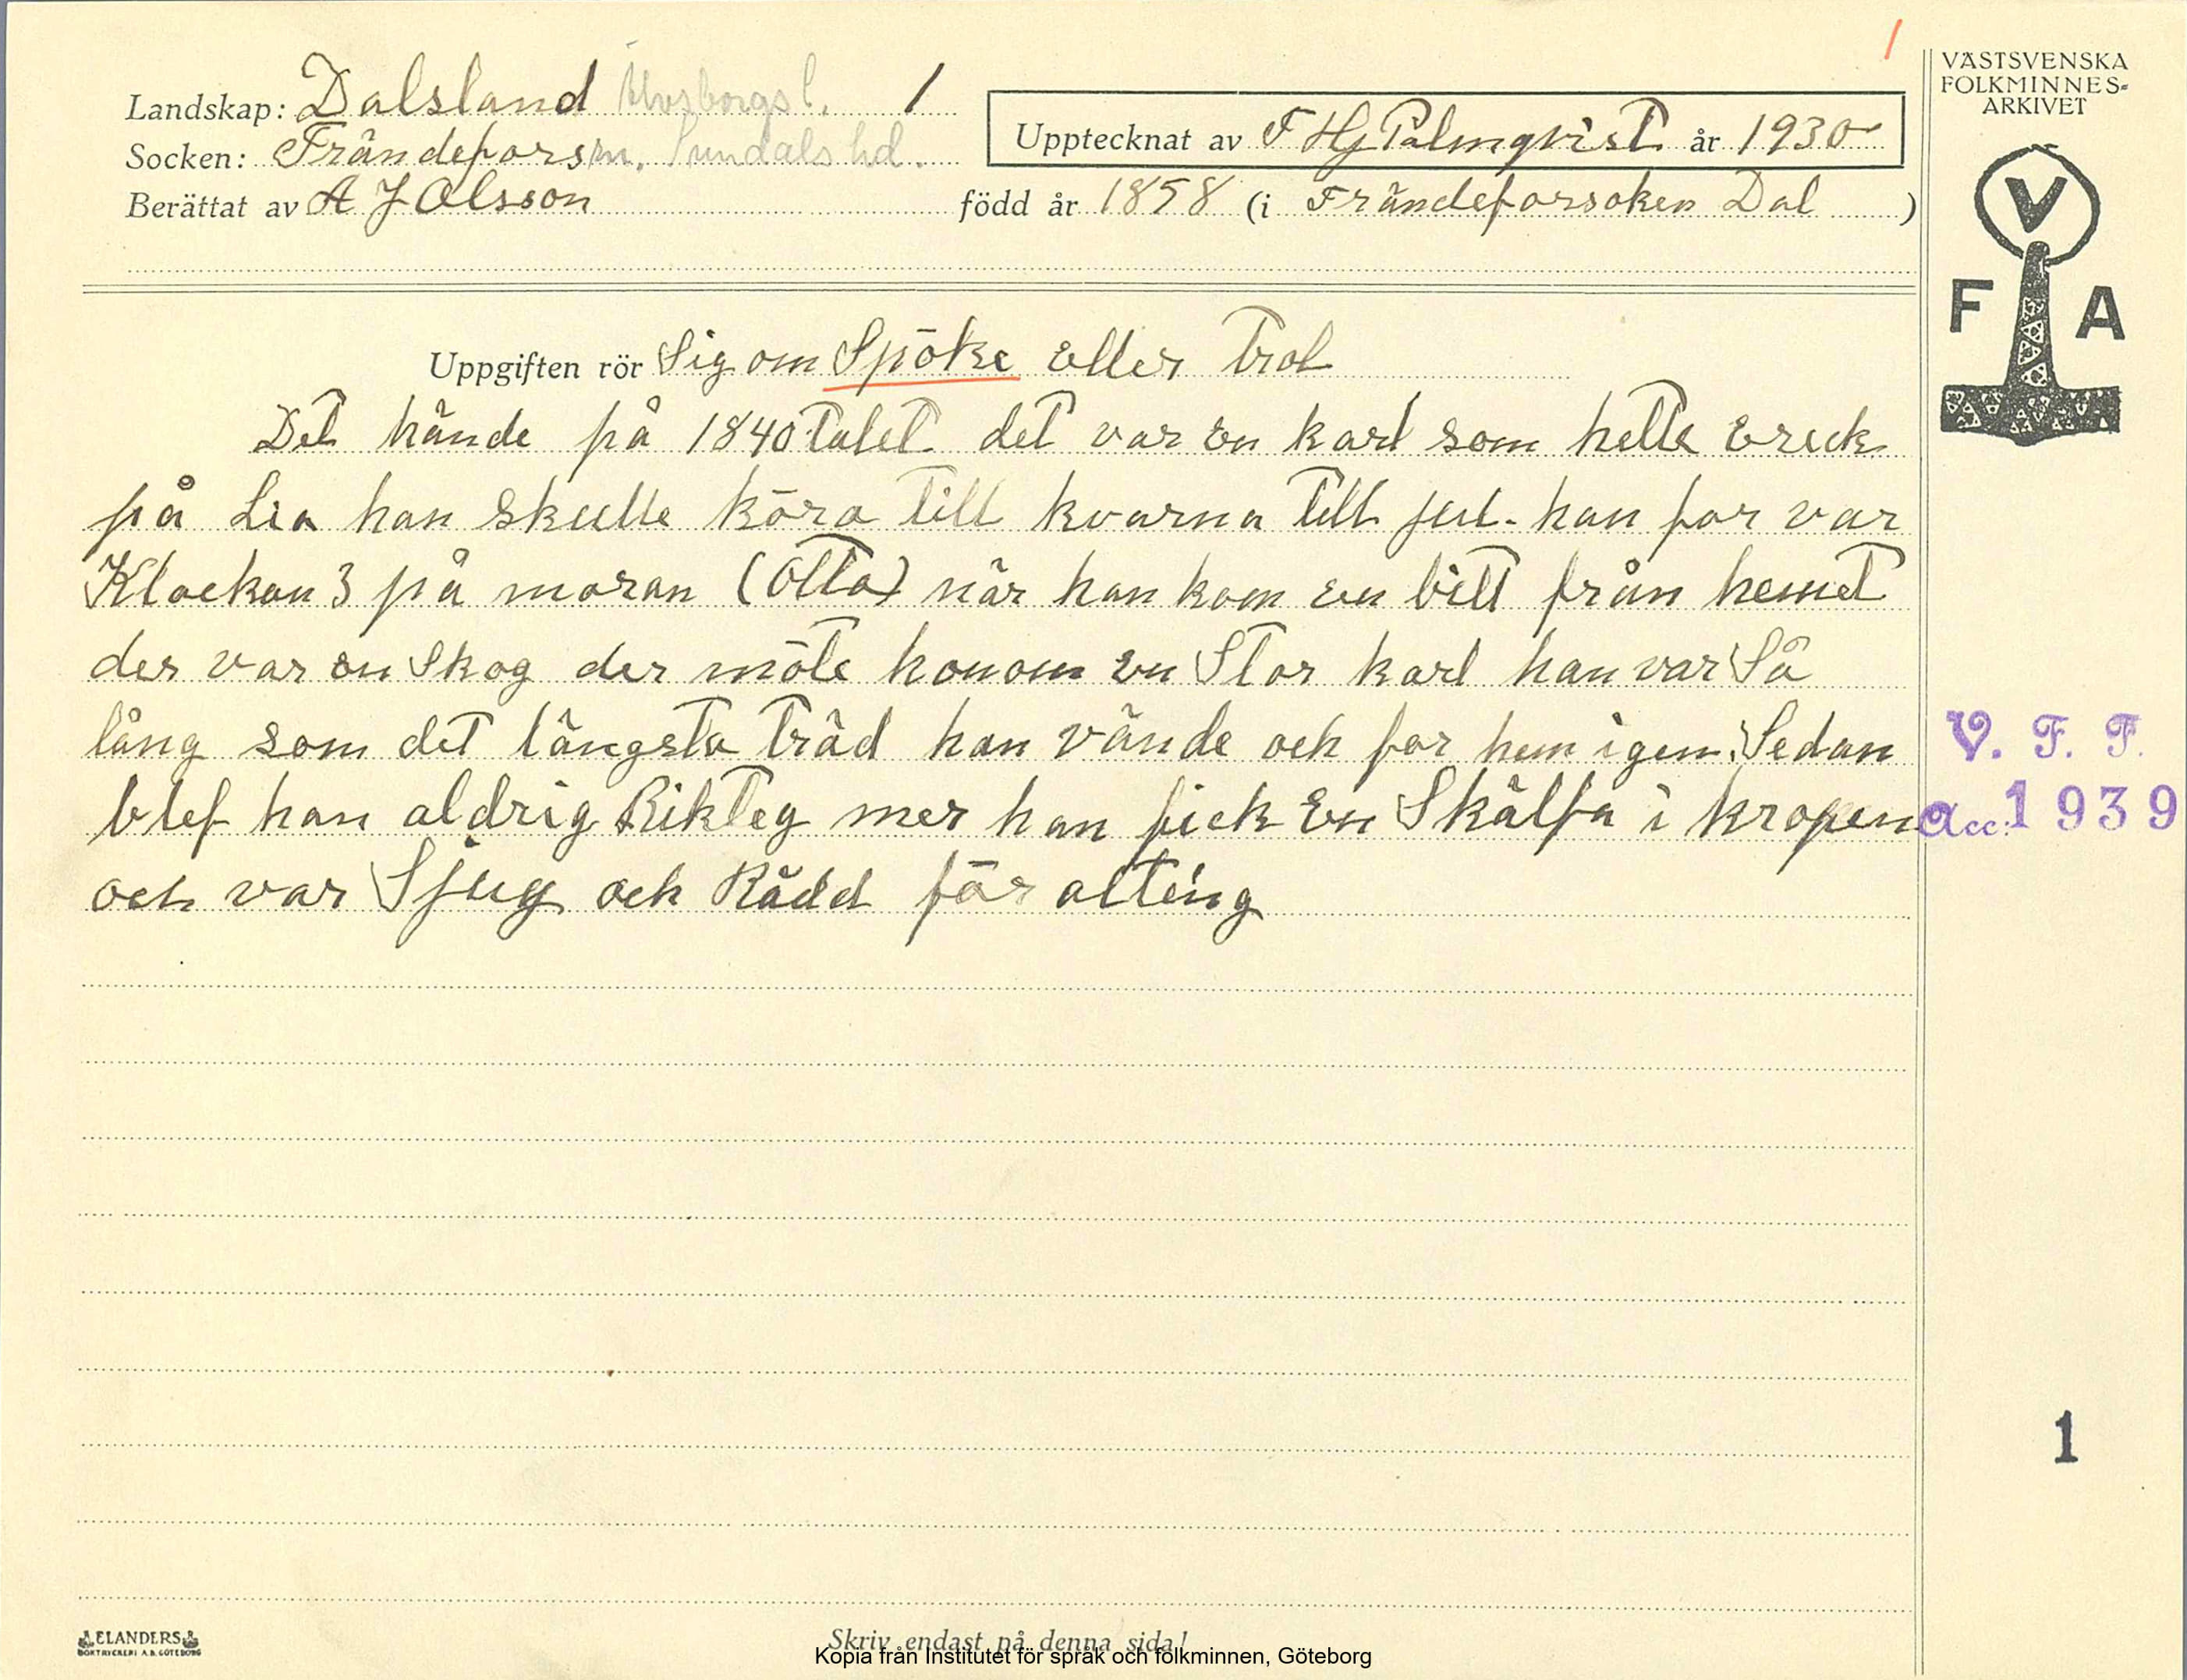 1
VÄSTSVENSKA
FOLKMINNES-
ARKIVET
V
F A
Landskap: Dalsland Älvsborgs l. 1
Socken: Frändefors sn. Sundals hd.
Upptecknat av F Hj Palmqvist år 1930
Berättat av A J Olsson född år 1858 (i Frändeforsoken Dal )
Uppgiften rör Sig om Spöke eller Trol
Det hände på 1840 talet det var en karl som hette Ereck
på Lia han skulle köra till kvarna till jul. han for var
Klockan 3 på moran (Otta) när han kom en bitt från hemet
der var en Skog der möte honom en Stor karl han var Så
lång som det längsta träd han vände och for hem igen. Sedan
blef han aldrig Rikteg mer han fick en Skälfa i kropen
och var Sjug och Rädd för alting
V. F. F.
Acc: 1939
1
ELANDERS
BOKTRYCKERI A.B. GÖTEBORG
Skriv endast på denna sida!
Kopia från Institutet för språk och folkminnen, Göteborg